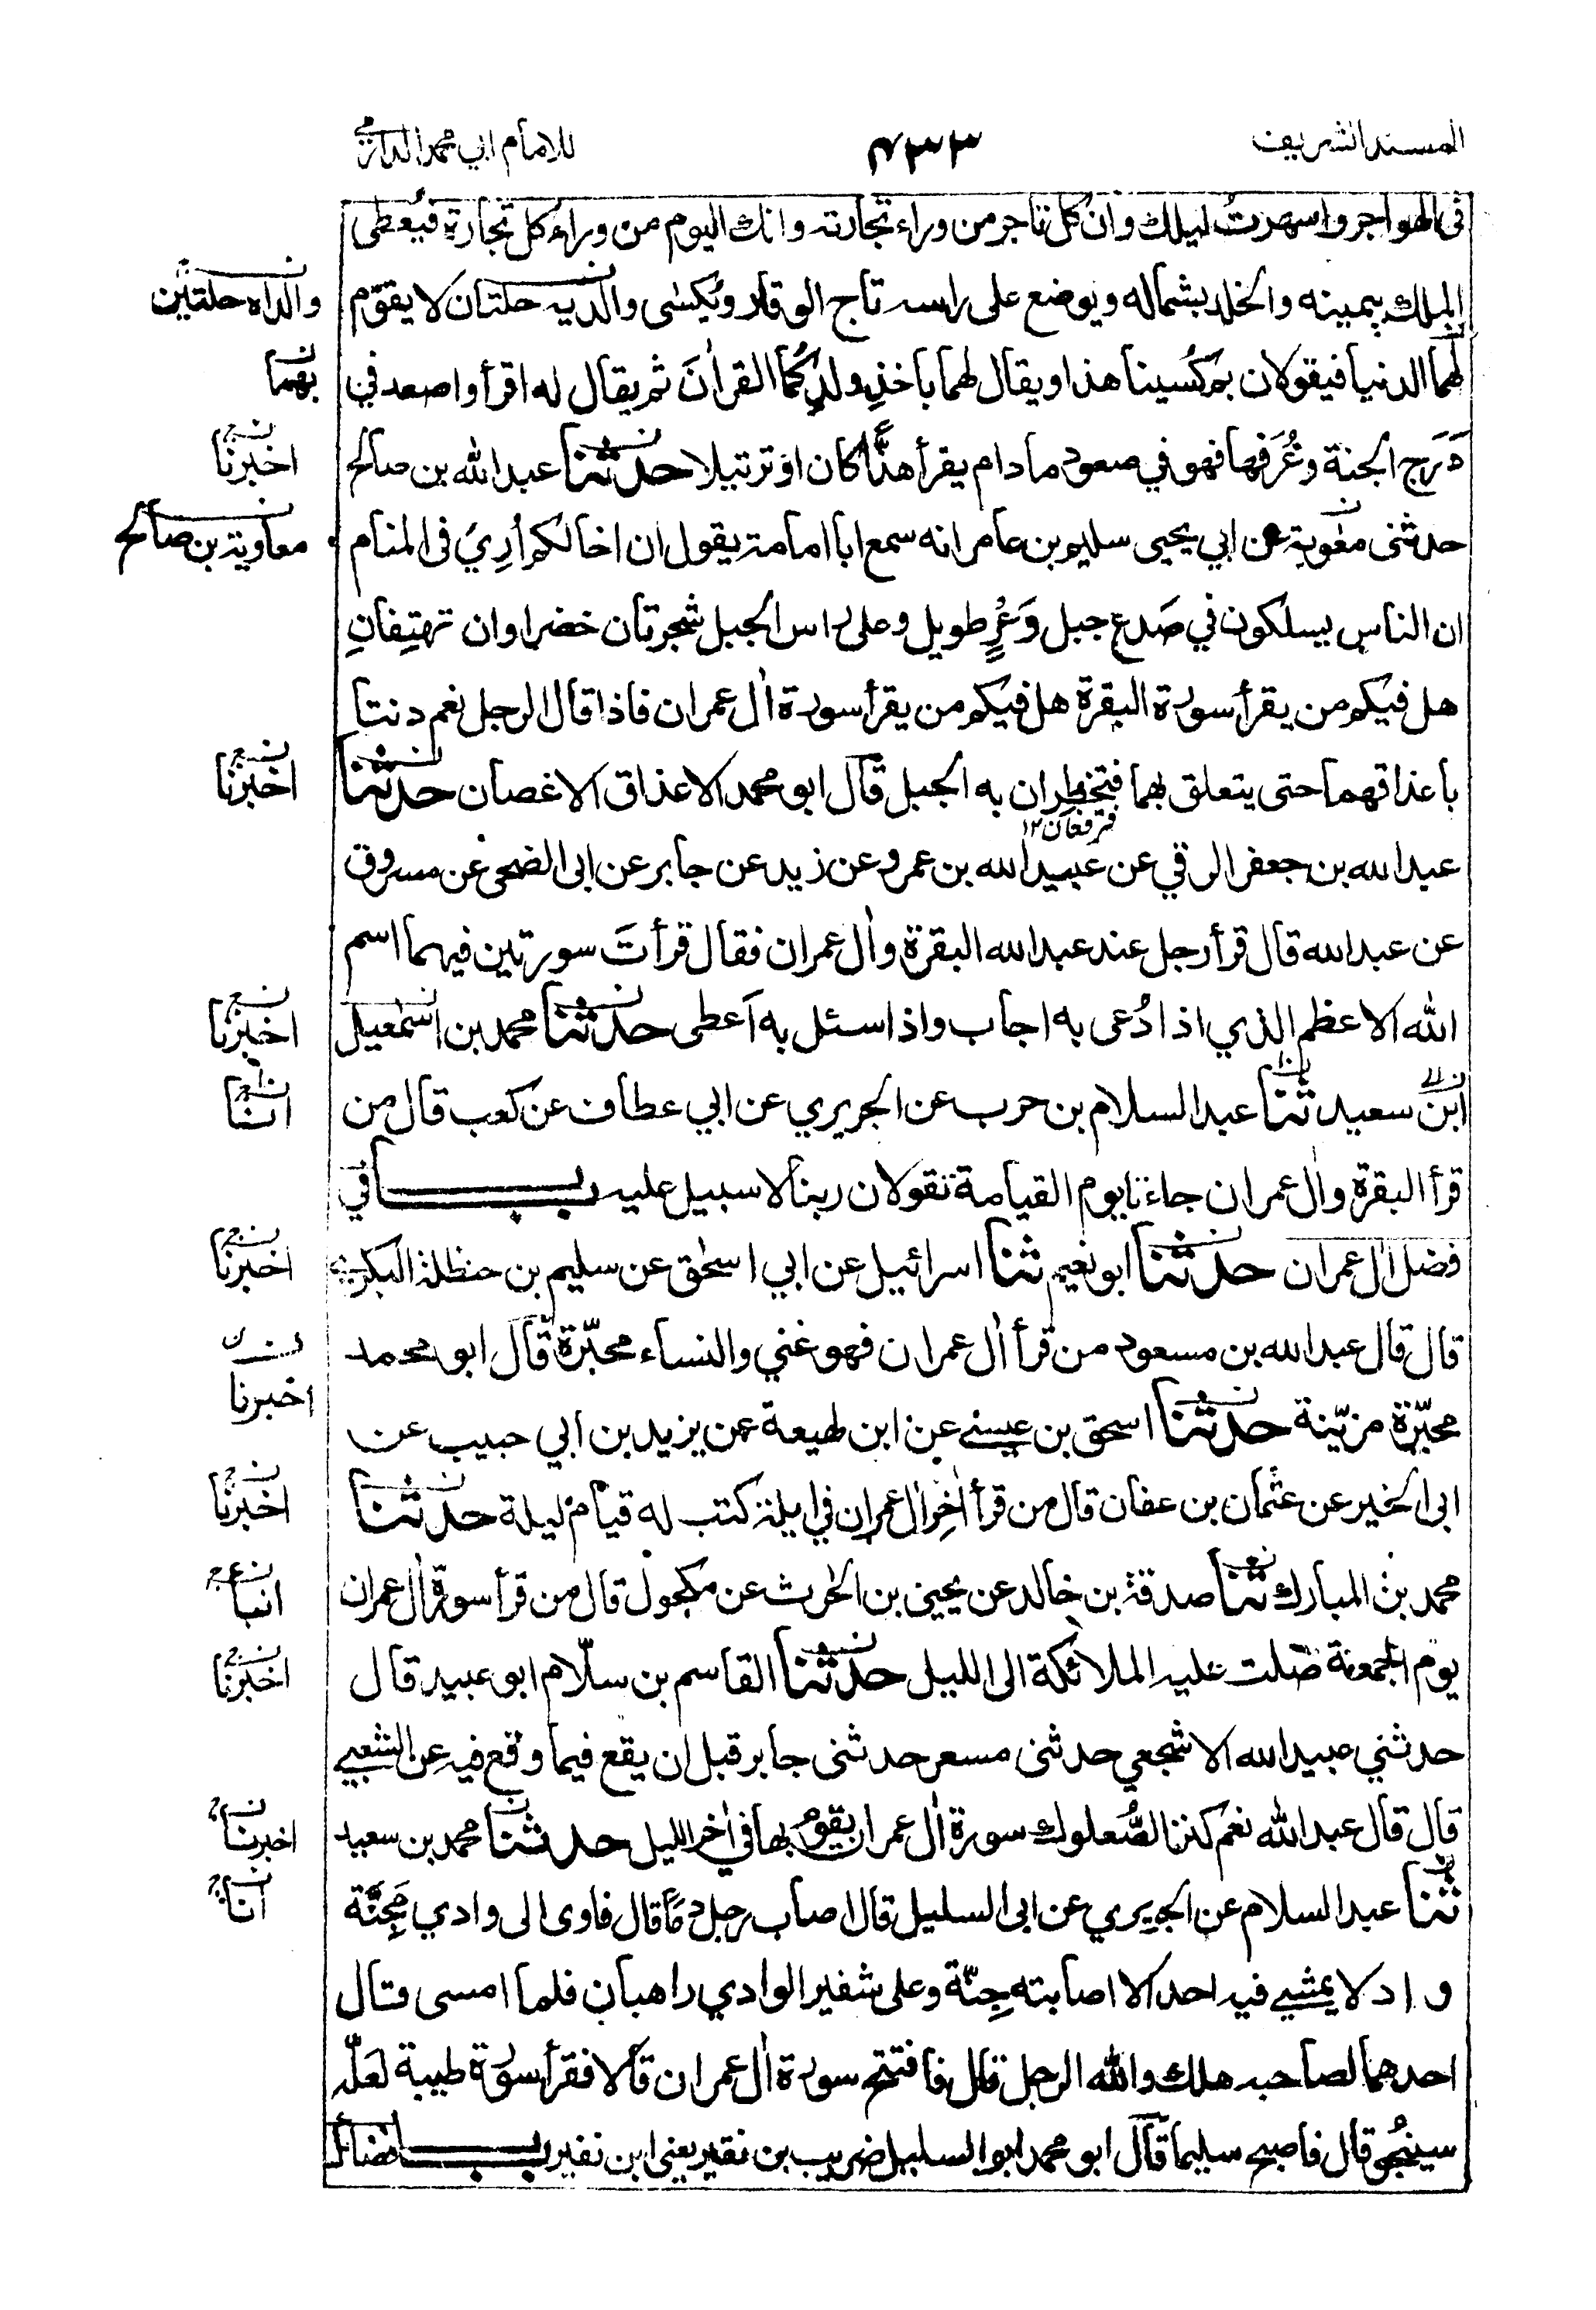 المسند الشريف ٤٣٣ للامام ابي محمد الدارمي
في الهواجر واسهرتُ ليلك وان كل تاجر من وراء تجارته وانك اليوم من وراء كل تجارة فيُعطى
الملك بيمينه والخلد بشماله ويوضع على راسه تاج الوقار ويُكسٰى والديه حلتان لا يقوّم
والداه حلتين
لهما الدنيا فيقولان بم كُسينا هذا ويقال لهما باخذِ ولدِكُما القراٰنَ ثم يقال له اقرأ واصعد في
بهما
دَرَج الجنة وغُرَفها فهو في صعود ما دام يقرأ هذًّا كان او ترتيلا حدثنا عبد الله بن صالح
اخبرنا
حدثنى معٰوية عن ابي يحيى سليم بن عامر انه سمع ابا امامة يقول ان اخا لكم اُرِيَ في المنام
معاوية بن صالح
ان الناس يسلكون في صَدع جبل وَعْرٍ طويل وعلى راس الجبل شجرتان خضراوان تهتِفانِ
هل فيكم من يقرأ سورة البقرة هل فيكم من يقرأ سورة اٰل عمران فاذا قال الرجل نعم دنتا
باعذاقهما حتى يتعلق بهما فتخطران به الجبل قال ابو محمد الاعذاق الاغصان حدثنا
اخبرنا
فترفعان ١٢
عبد الله بن جعفر الرقي عن عبيد الله بن عمرو عن زيد عن جابر عن ابى الضحى عن مسروق
عن عبد الله قال قرأ رجل عند عبد الله البقرة واٰل عمران فقال قرأتَ سورتين فيهما اسم
الله الاعظم الذي اذا دُعى به اجاب واذا سئل به اَعطى حدثنا محمد بن اسمٰعيل
اخبرنا
ابن سعيد ثنا عبد السلام بن حرب عن الجريري عن ابي عطاف عن كعب قال من
انا
قرأ البقرة واٰل عمران جاءتا يوم القيامة تقولان ربنا لا سبيل عليه باب في
فضل اٰل عمران حدثنا ابو نعيم ثنا اسرائيل عن ابي اسحٰق عن سليم بن حنظلة البكري
اخبرنا
قال قال عبد الله بن مسعود من قرأ اٰل عمران فهو غني والنساء محبّرة قال ابو محمد
محبّرة مزيّنة حدثنا اسحق بن عيسٰى عن ابن لهيعة عن يزيد بن ابي حبيب عن
اخبرنا
ابى الخير عن عثمان بن عفان قال من قرأ اٰخِر اٰل عمران في ليلة كتب له قيام ليلة حدثنا
اخبرنا
محمد بن المبارك ثنا صدقة بن خالد عن يحيى بن الحٰرث عن مكحول قال من قرأ سورة اٰل عمران
انبا
يوم الجمعة صلت عليه الملائكة الى الليل حدثنا القاسم بن سلّام ابو عبيد قال
اخبرنا
حدثني عبيد الله الاشجعي حدثنى مسعر حدثنى جابر قبل ان يقع فيما وقع فيه عن الشعبي
قال قال عبد الله نعم كنز الصُّعلوك سورة اٰل عمران يقوم بها في اٰخر الليل حدثنا محمد بن سعيد
اخبرنا
ثنا عبد السلام عن الجريري عن ابى السليل قال اصاب رجل دمًا قال فاوى الى وادي مَجِنَّة
انا
واد لا يمشي فيه احد الا اصابته جِنّة وعلى شفير الوادي راهبان فلما امسى قال
احدهما لصاحبه هلك والله الرجل قال فافتتح سورة اٰل عمران قالا فقرأ سورة طيبة لعَلّه
سينجُو قال فاصبح سليما قال ابو محمد ابو السليل ضريب بن نقير يعنى ابن نفير باب فضائل